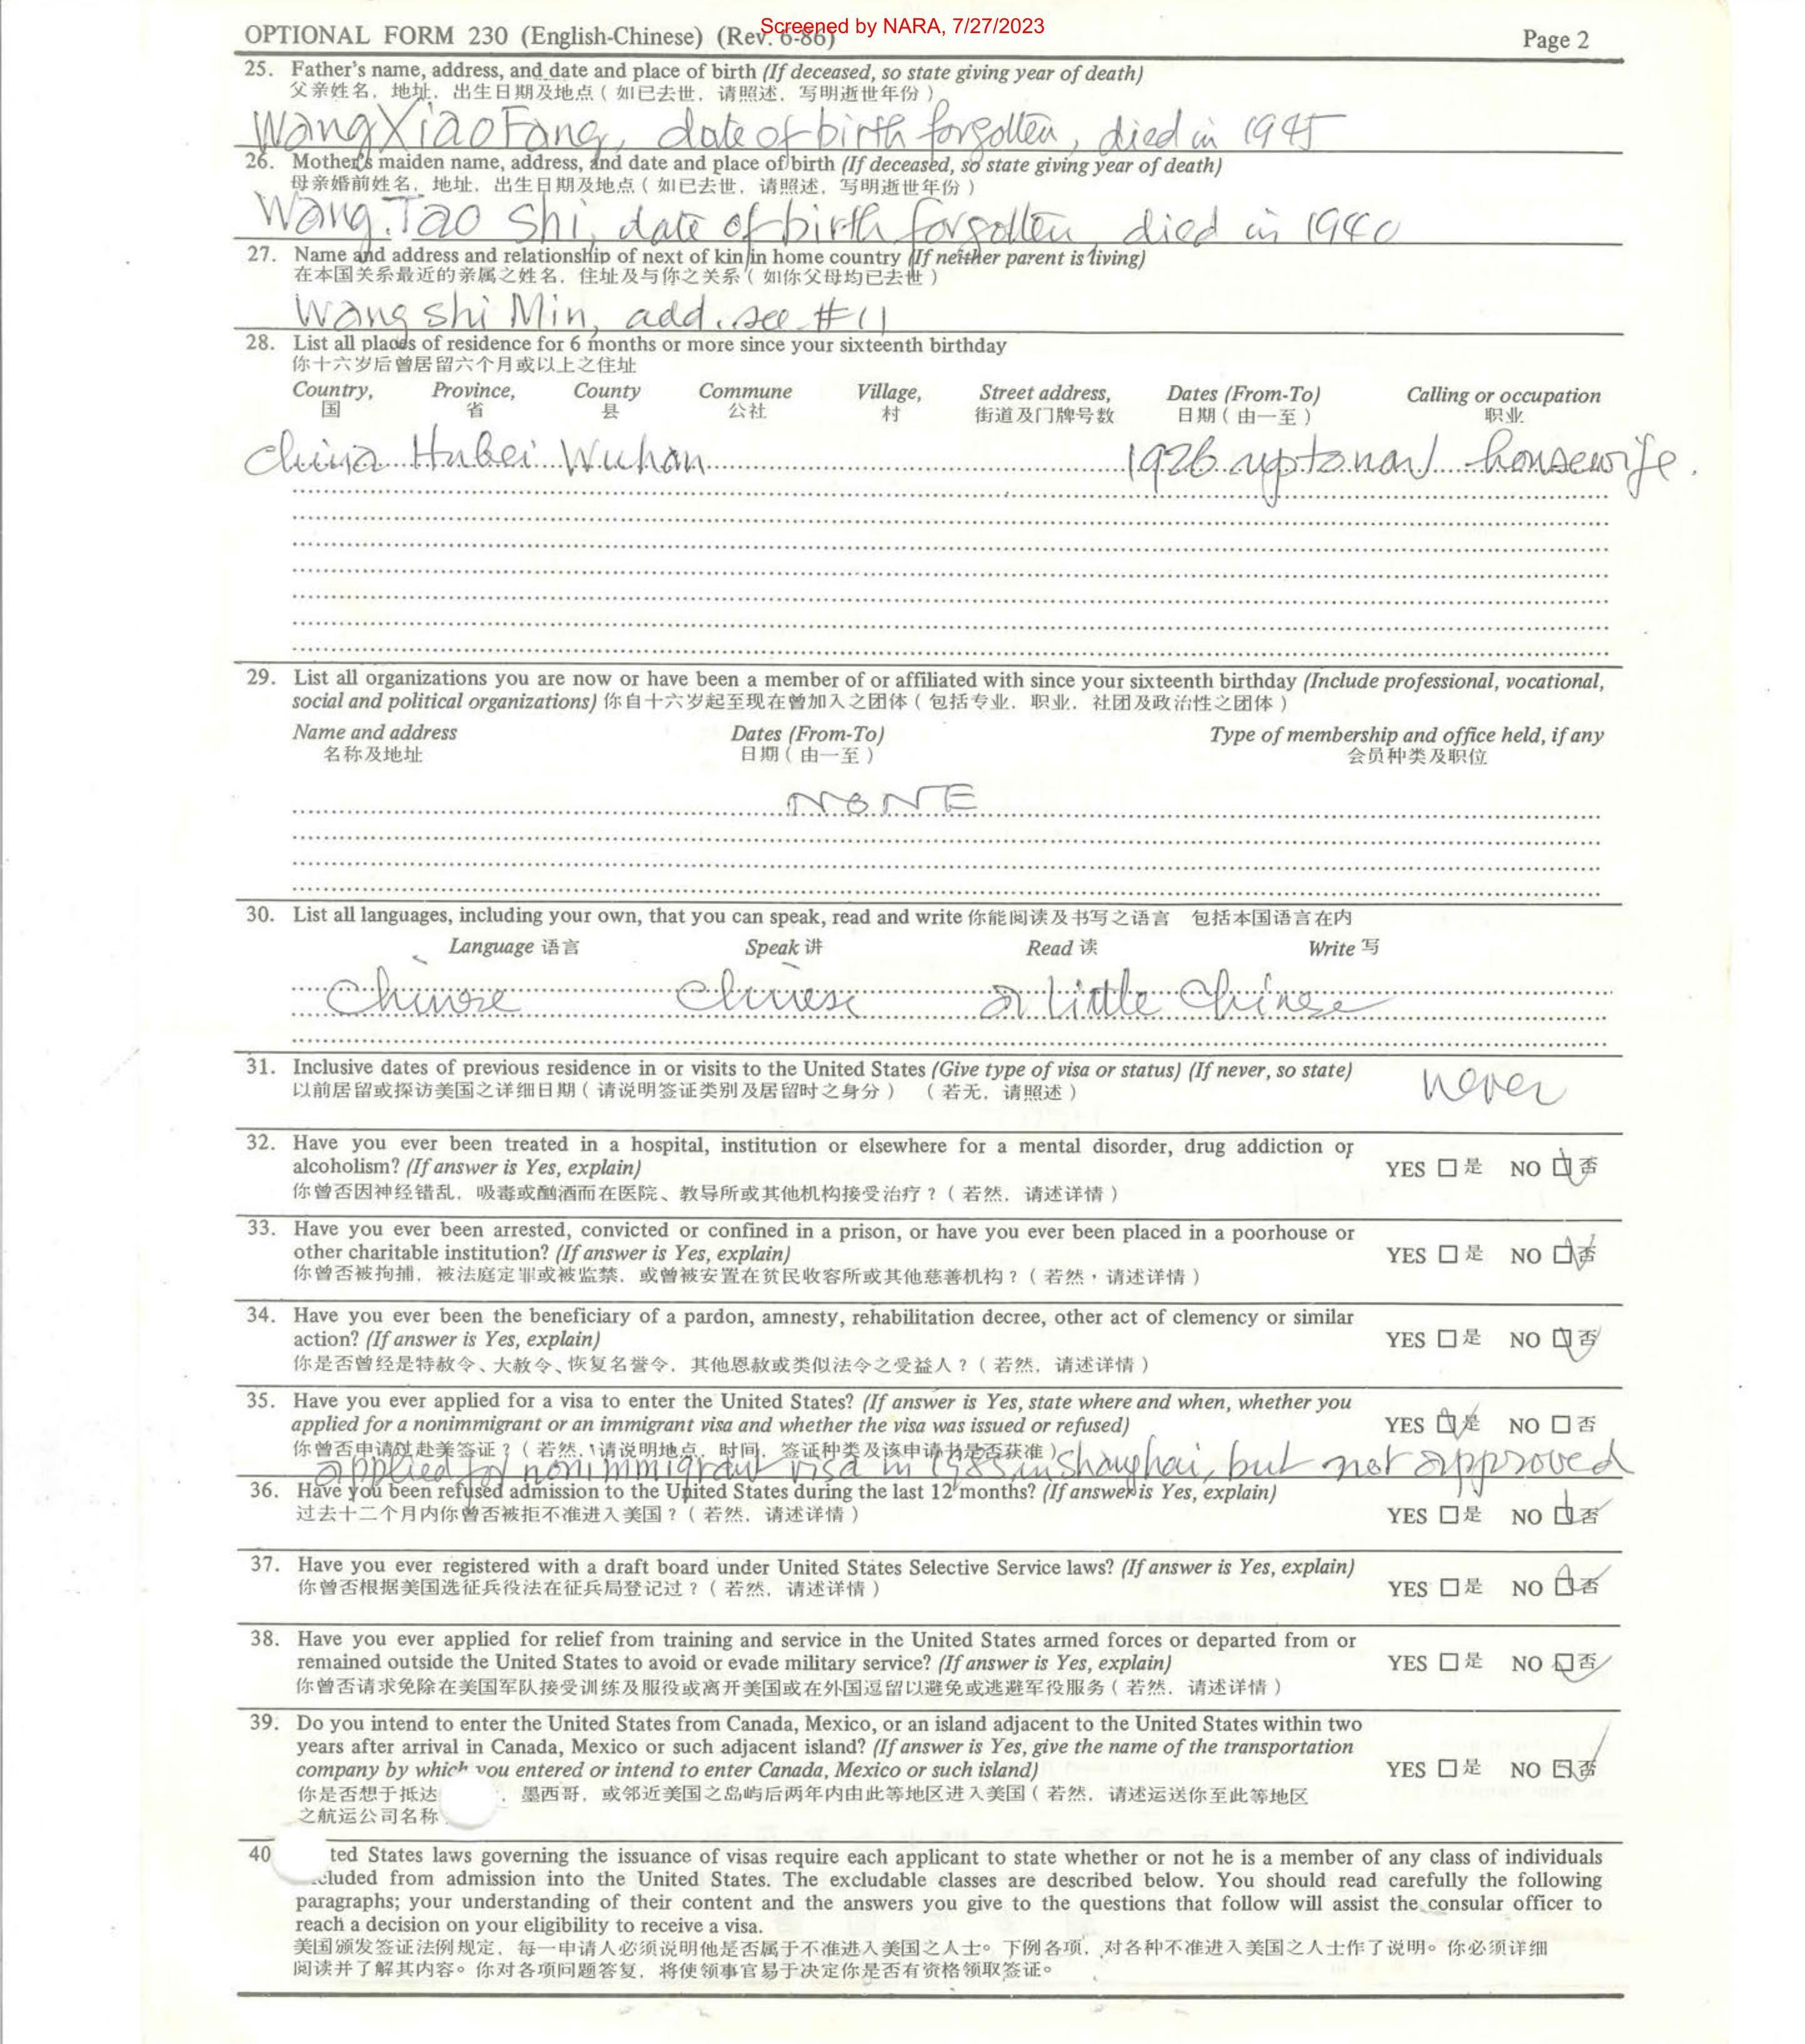 Screened by NARA, 7/27/2023
OPTIONAL FORM 230 (English-Chinese) (Rev. 6-86) Page 2
25. Father's name, address, and date and place of birth (If deceased, so state giving year of death)
父亲姓名．地址．出生日期及地点（如已去世．请照述．写明逝世年份）
Wang XiaoFang, date of birth forgotten, died in 1945
26. Mother's maiden name, address, and date and place of birth (If deceased, so state giving year of death)
母亲婚前姓名．地址．出生日期及地点（如已去世．请照述．写明逝世年份）
Wang. Tao Shi, date of birth forgotten, died in 1940
27. Name and address and relationship of next of kin in home country (If neither parent is living)
在本国关系最近的亲属之姓名．住址及与你之关系（如你父母均已去世）
Wang shi Min, add. see #11
28. List all places of residence for 6 months or more since your sixteenth birthday
你十六岁后曾居留六个月或以上之住址
Country, Province, County Commune Village, Street address, Dates (From-To) Calling or occupation
国 省 县 公社 村 街道及门牌号数 日期（由一至） 职业
China Hubei Wuhan 1926 up to now housewife.
29. List all organizations you are now or have been a member of or affiliated with since your sixteenth birthday (Include professional, vocational,
social and political organizations) 你自十六岁起至现在曾加入之团体（包括专业．职业．社团及政治性之团体）
Name and address Dates (From-To) Type of membership and office held, if any
名称及地址 日期（由一至） 会员种类及职位
NONE
30. List all languages, including your own, that you can speak, read and write 你能阅读及书写之语言 包括本国语言在内
Language 语言 Speak 讲 Read 读 Write 写
Chinese Chinese a little Chinese
31. Inclusive dates of previous residence in or visits to the United States (Give type of visa or status) (If never, so state)
以前居留或探访美国之详细日期（请说明签证类别及居留时之身分） （若无．请照述） never
32. Have you ever been treated in a hospital, institution or elsewhere for a mental disorder, drug addiction or
alcoholism? (If answer is Yes, explain) YES □ 是 NO □ 否
你曾否因神经错乱．吸毒或酗酒而在医院、教导所或其他机构接受治疗？（若然．请述详情）
33. Have you ever been arrested, convicted or confined in a prison, or have you ever been placed in a poorhouse or
other charitable institution? (If answer is Yes, explain) YES □ 是 NO □ 否
你曾否被拘捕．被法庭定罪或被监禁．或曾被安置在贫民收容所或其他慈善机构？（若然，请述详情）
34. Have you ever been the beneficiary of a pardon, amnesty, rehabilitation decree, other act of clemency or similar
action? (If answer is Yes, explain) YES □ 是 NO □ 否
你是否曾经是特赦令、大赦令、恢复名誉令．其他恩赦或类似法令之受益人？（若然．请述详情）
35. Have you ever applied for a visa to enter the United States? (If answer is Yes, state where and when, whether you
applied for a nonimmigrant or an immigrant visa and whether the visa was issued or refused) YES □ 是 NO □ 否
你曾否申请过赴美签证？（若然．请说明地点．时间．签证种类及该申请书是否获准）
applied for nonimmigrant visa in 1985 in Shanghai, but not approved
36. Have you been refused admission to the United States during the last 12 months? (If answer is Yes, explain)
过去十二个月内你曾否被拒不准进入美国？（若然．请述详情） YES □ 是 NO □ 否
37. Have you ever registered with a draft board under United States Selective Service laws? (If answer is Yes, explain)
你曾否根据美国选征兵役法在征兵局登记过？（若然．请述详情） YES □ 是 NO □ 否
38. Have you ever applied for relief from training and service in the United States armed forces or departed from or
remained outside the United States to avoid or evade military service? (If answer is Yes, explain) YES □ 是 NO □ 否
你曾否请求免除在美国军队接受训练及服役或离开美国或在外国逗留以避免或逃避军役服务（若然．请述详情）
39. Do you intend to enter the United States from Canada, Mexico, or an island adjacent to the United States within two
years after arrival in Canada, Mexico or such adjacent island? (If answer is Yes, give the name of the transportation
company by which you entered or intend to enter Canada, Mexico or such island) YES □ 是 NO □ 否
你是否想于抵达 ．墨西哥．或邻近美国之岛屿后两年内由此等地区进入美国（若然．请述运送你至此等地区
之航运公司名称
40 ted States laws governing the issuance of visas require each applicant to state whether or not he is a member of any class of individuals
cluded from admission into the United States. The excludable classes are described below. You should read carefully the following
paragraphs; your understanding of their content and the answers you give to the questions that follow will assist the consular officer to
reach a decision on your eligibility to receive a visa.
美国颁发签证法例规定．每一申请人必须说明他是否属于不准进入美国之人士。下例各项．对各种不准进入美国之人士作了说明。你必须详细
阅读并了解其内容。你对各项问题答复．将使领事官易于决定你是否有资格领取签证。